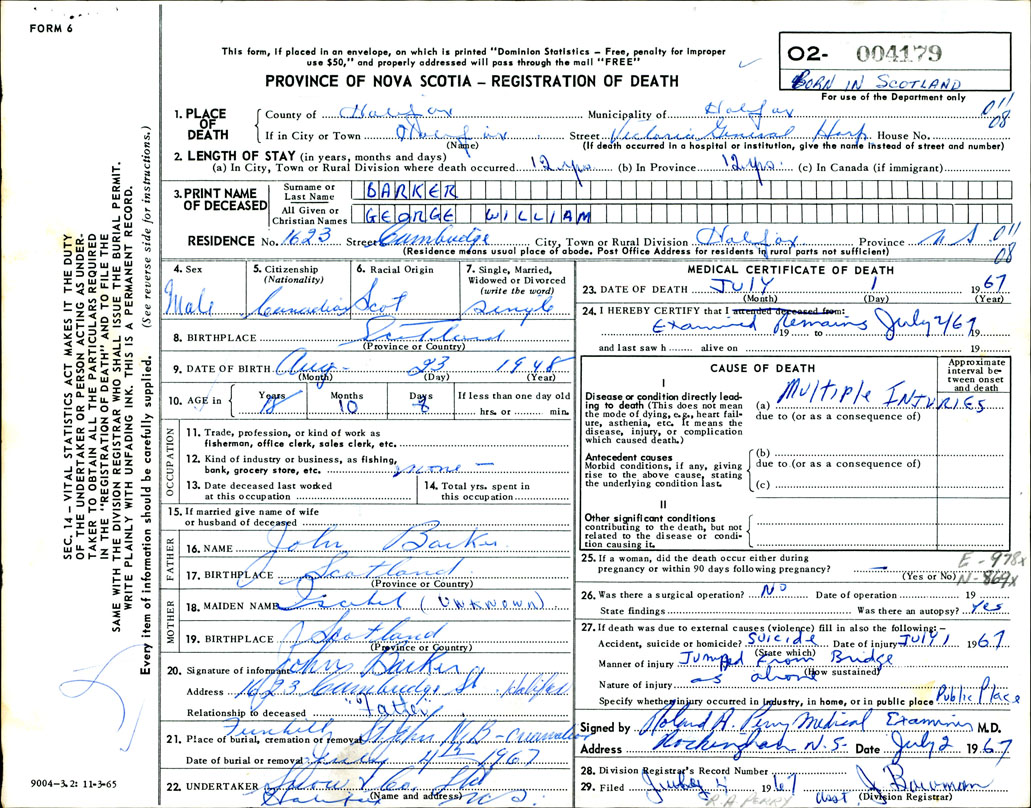 FORM 6
This form, if placed in an envelope, on which is printed "Dominion Statistics – Free, penalty for improper
use $50," and properly addressed will pass through the mail "FREE"
PROVINCE OF NOVA SCOTIA – REGISTRATION OF DEATH
O2- 004179
BORN IN SCOTLAND
For use of the Department only
SEC. 14 – VITAL STATISTICS ACT MAKES IT THE DUTY
OF THE UNDERTAKER OR PERSON ACTING AS UNDER-
TAKER TO OBTAIN ALL THE PARTICULARS REQUIRED
IN THE "REGISTRATION OF DEATH" AND TO FILE THE
SAME WITH THE DIVISION REGISTRAR WHO SHALL ISSUE THE BURIAL PERMIT.
WRITE PLAINLY WITH UNFADING INK. THIS IS A PERMANENT RECORD.
Every item of information should be carefully supplied. (See reverse side for instructions.)
1. PLACE OF DEATH
County of Halifax Municipality of Halifax 011
If in City or Town Halifax Street Victoria General Hosp. House No. 08
(Name) (If death occurred in a hospital or institution, give the name instead of street and number)
2. LENGTH OF STAY (in years, months and days)
(a) In City, Town or Rural Division where death occurred 12 yrs. (b) In Province 12 yrs. (c) In Canada (if immigrant)
3. PRINT NAME OF DECEASED
Surname or Last Name BARKER
All Given or Christian Names GEORGE WILLIAM
RESIDENCE No. 1623 Street Cambridge City, Town or Rural Division Halifax Province N S 011
(Residence means usual place of abode. Post Office Address for residents in rural parts not sufficient) 08
4. Sex Male
5. Citizenship (Nationality) Canadian
6. Racial Origin Scot
7. Single, Married, Widowed or Divorced (write the word) single
8. BIRTHPLACE Scotland
(Province or Country)
9. DATE OF BIRTH Aug 23 1948
(Month) (Day) (Year)
10. AGE in Years 18 Months 10 Days 8 If less than one day old
hrs. or min.
OCCUPATION
11. Trade, profession, or kind of work as
fisherman, office clerk, sales clerk, etc.
12. Kind of industry or business, as fishing,
bank, grocery store, etc. none –
13. Date deceased last worked
at this occupation
14. Total yrs. spent in
this occupation
15. If married give name of wife
or husband of deceased
FATHER
16. NAME John Barker
17. BIRTHPLACE Scotland
(Province or Country)
MOTHER
18. MAIDEN NAME Isabel (UNKNOWN)
19. BIRTHPLACE Scotland
(Province or Country)
20. Signature of informant John Barker
Address 1623 Cambridge St Halifax
Relationship to deceased "Father"
21. Place of burial, cremation or removal Fernhill St John N.B – Cremation
Date of burial or removal July 4th 1967
22. UNDERTAKER Snow & Co. Ltd
Halifax (Name and address) N.S.
9004–3.2: 11-3-65
MEDICAL CERTIFICATE OF DEATH
23. DATE OF DEATH JULY 1 1967
(Month) (Day) (Year)
24. I HEREBY CERTIFY that I attended deceased from:
Examined Remains July 2/67
19 to 19
and last saw h alive on 19
CAUSE OF DEATH
Approximate interval between onset and death
I
Disease or condition directly lead-
ing to death (This does not mean
the mode of dying, e.g., heart fail-
ure, asthenia, etc. It means the
disease, injury, or complication
which caused death.)
(a) MULTIPLE INJURIES
due to (or as a consequence of)
Antecedent causes
Morbid conditions, if any, giving
rise to the above cause, stating
the underlying condition last.
(b)
due to (or as a consequence of)
(c)
II
Other significant conditions
contributing to the death, but not
related to the disease or condi-
tion causing it.
25. If a woman, did the death occur either during
pregnancy or within 90 days following pregnancy? –
(Yes or No)
E-978x
N-869x
26. Was there a surgical operation? No Date of operation 19
State findings Was there an autopsy? Yes
27. If death was due to external causes (violence) fill in also the following:–
Accident, suicide or homicide? Suicide Date of injury JULY 1 1967
(State which)
Manner of injury Jumped From Bridge
(How sustained)
Nature of injury as above
Specify whether injury occurred in industry, in home, or in public place Public Place
Signed by Roland A. Perry Medical Examiner M.D.
Address Rockingham N.S. Date July 2 1967
28. Division Registrar's Record Number
29. Filed July 1967 Asst J. Bowman
(Division Registrar)
R.A. PERRY